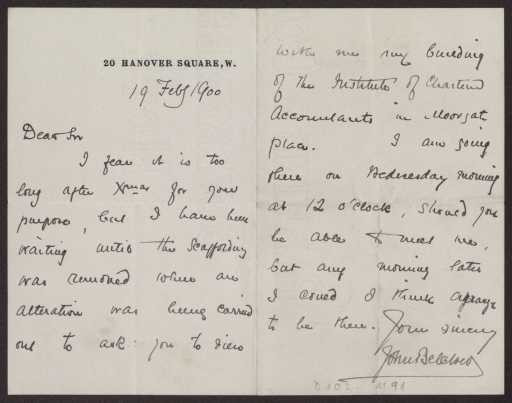 20 HANOVER SQUARE, W.
19 Feby 1900
Dear Sir
I fear it is too
long after Xmas for your
purpose, but I have been
waiting until the Scaffolding
was removed when an
alteration was being carried
out to ask you to view
with me my building
of the Institute of Chartered
Accountants in Moorgate
place. I am going
there on Wednesday morning
at 12 o'clock, should you
be able to meet me,
but any morning later
I could I think arrange
to be there. Yours sincerely
John Belcher